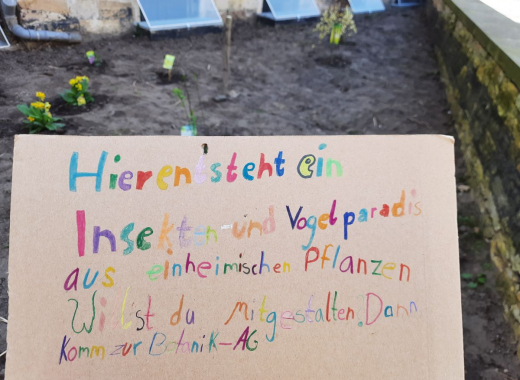 Hier entsteht ein
Insekten- und Vogelparadis
aus einheimischen Pflanzen
Willst du mitgestalten. Dann
Komm zur Botanik-AG